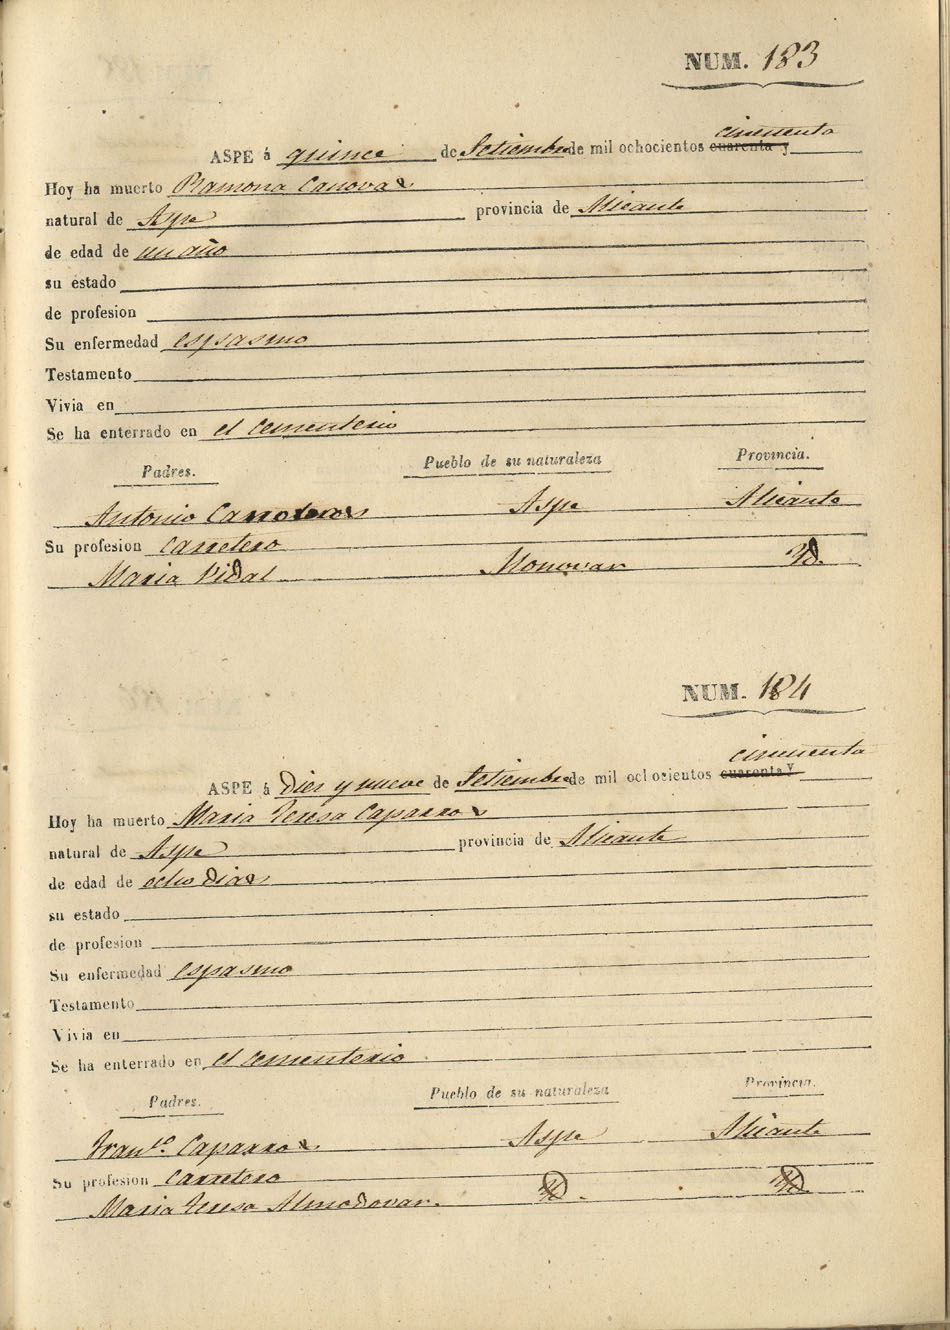 NUM. 183
cincuenta
ASPE á quince de Setiembre de mil ochocientos cuarenta y
Hoy ha muerto Ramona Canovas
natural de Aspe provincia de Alicante
de edad de un año
su estado
de profesion
Su enfermedad espasmo
Testamento
Vivia en
Se ha enterrado en el cementerio
Padres. Pueblo de su naturaleza Provincia.
Antonio Aspe Alicante
Su profesion carretero
Maria Vidal Monovar Yd.
NUM. 184
cincuenta
ASPE á Dies y nueve de Setiembre de mil ochocientos cuarenta y
Hoy ha muerto Maria Teresa Caparros
natural de Aspe provincia de Alicante
de edad de ocho Dias
su estado
de profesion
Su enfermedad espasmo
Testamento
Vivia en
Se ha enterrado en el cementerio
Padres. Pueblo de su naturaleza Provincia.
Fran.co Caparros Aspe Alicante
Su profesion carretero
Maria Teresa Almodovar. Yd. Yd.